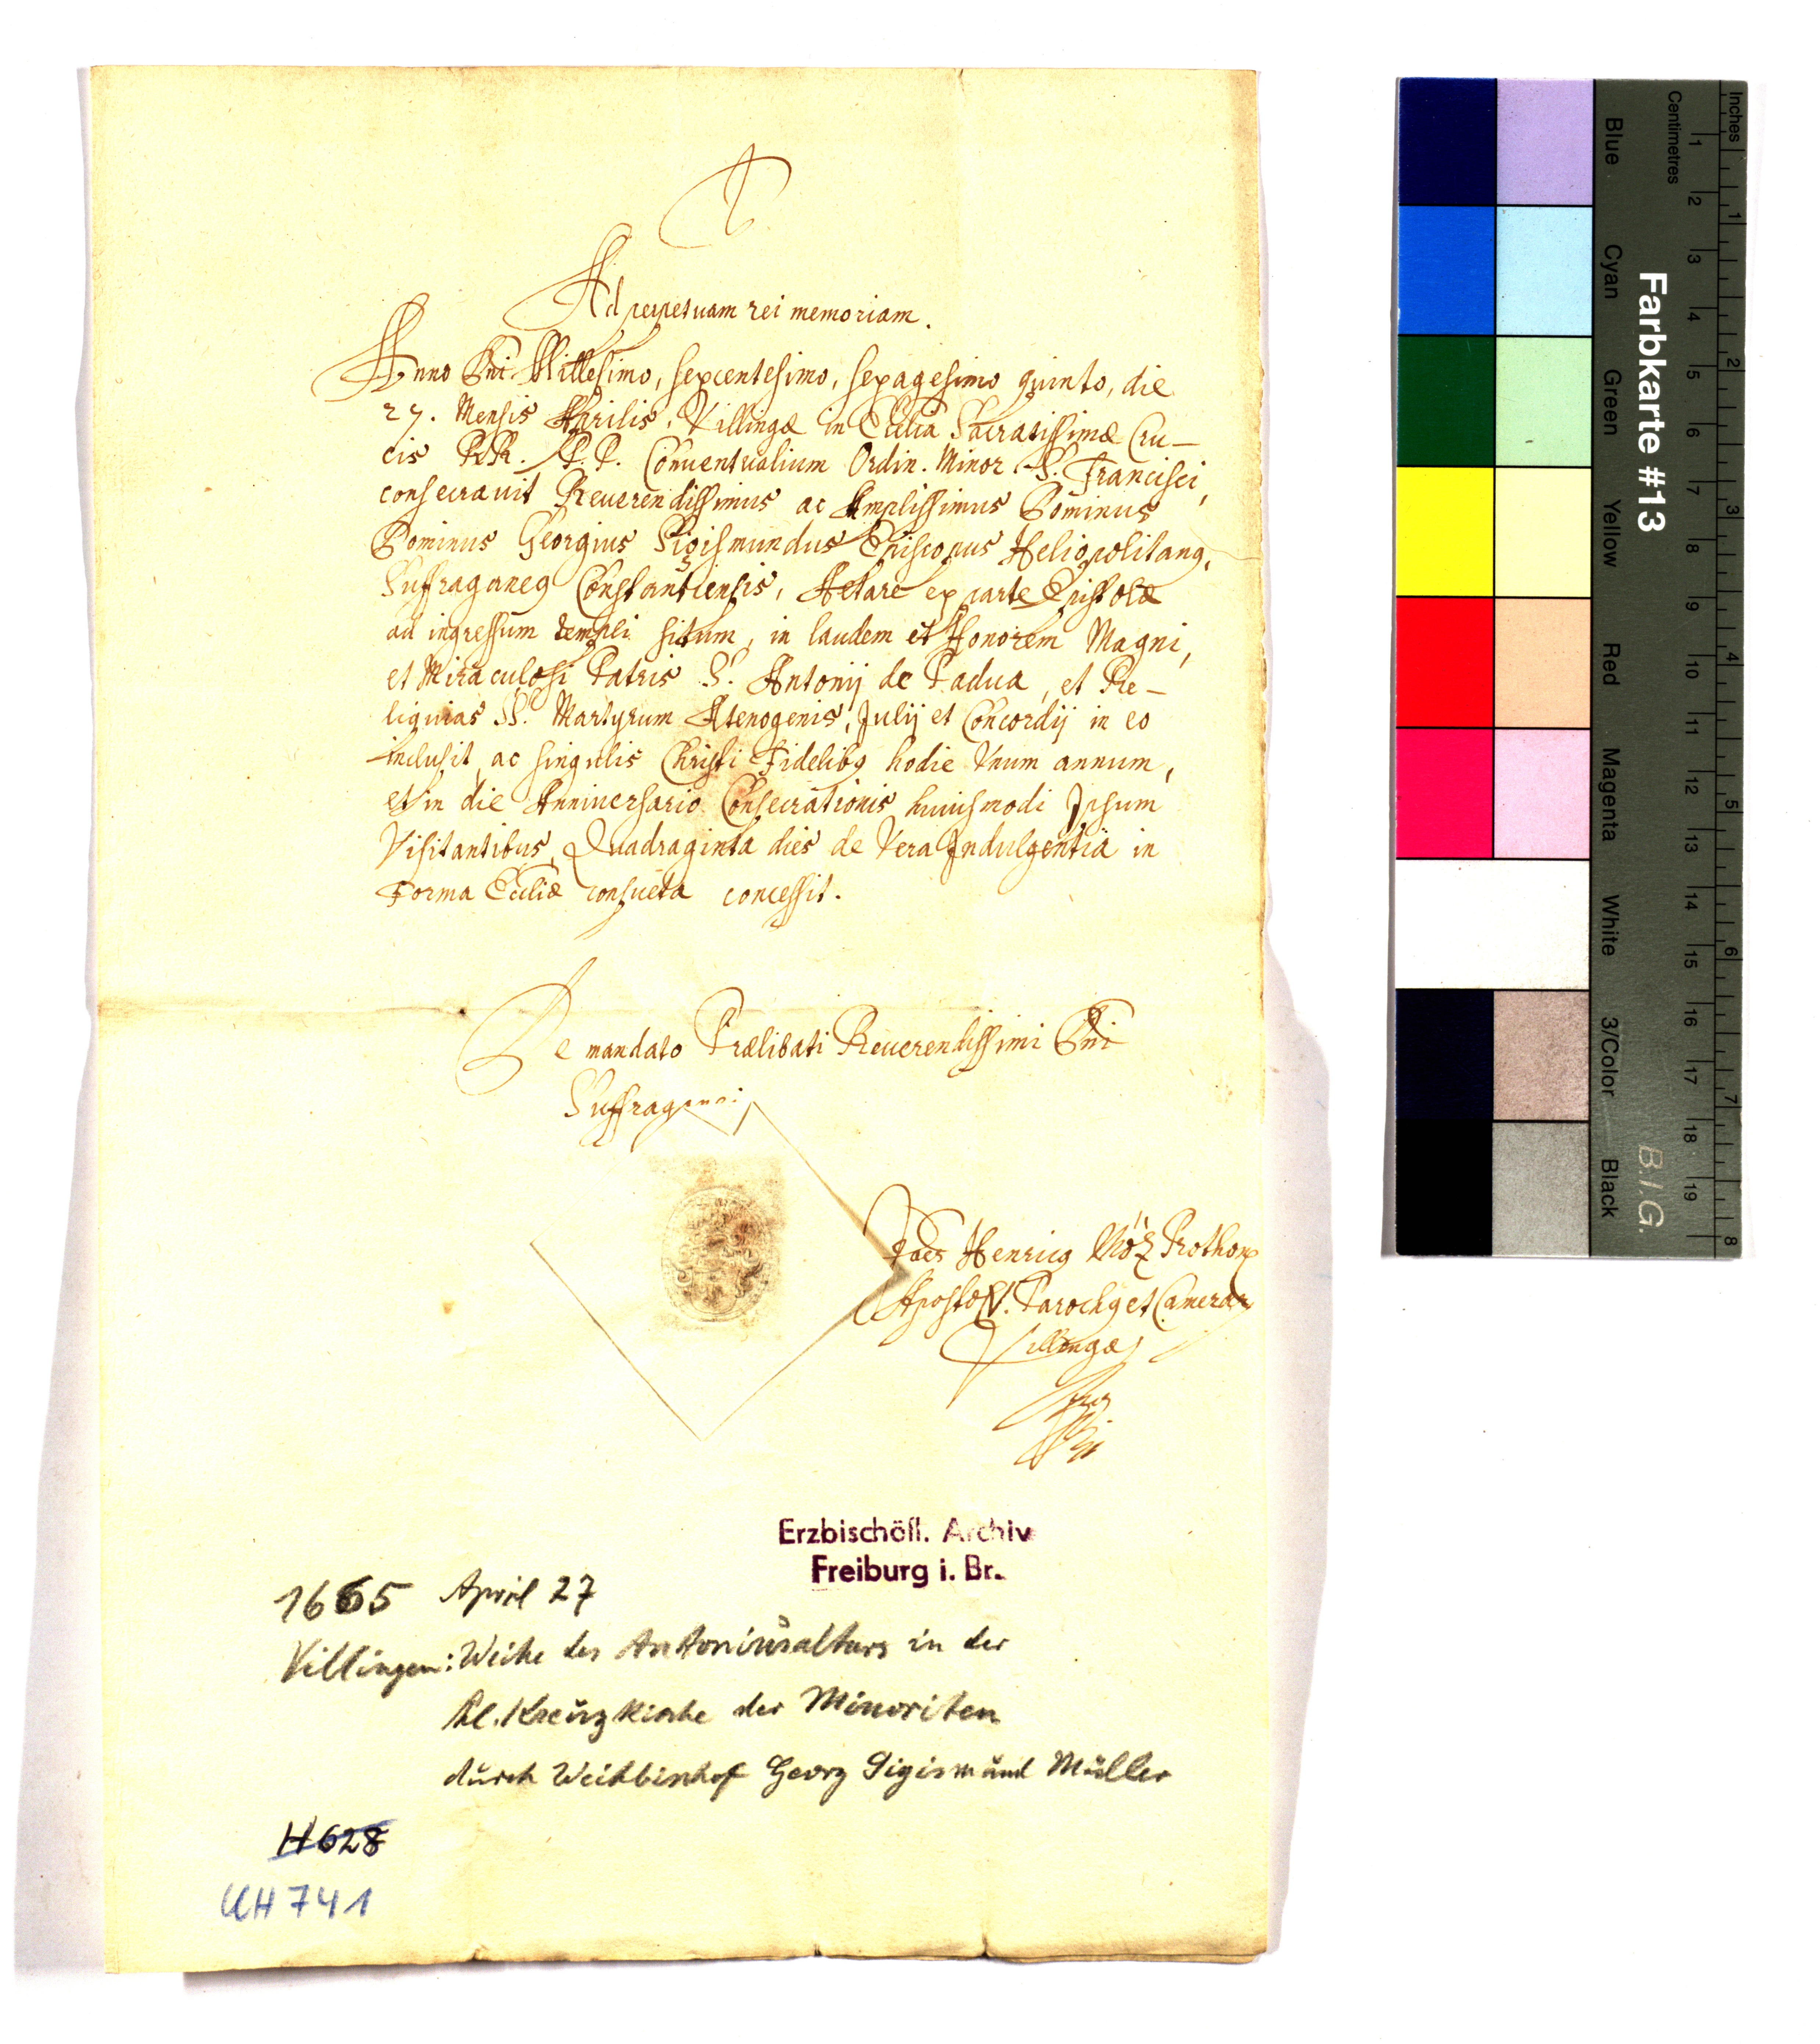 Ad perpetuam rei memoriam.
Anno Dni Millesimo, sexcentesimo, sexagesimo quinto, die
27. Mensis Aprilis, Villingæ in Ecclia Sacratissimæ Cru-
cis RR. P.P. Conuentualium Ordin. Minor S. Francisci,
consecrauit Reuerendissimus ac Amplissimus Dominus
Dominus Georgius Sigismundus Episcopus Heliopolitanq,
Suffraganeq Constantiensis, Altare ex parte Epistolæ
ad ingressum templi situm, in laudem et Honorem Magni,
et Miraculosi Patris S. Antonij de Padua, et Re-
liquias SS. Martyrum Atenogenis, Julij et Concordij in eo
inclusit, ac singulis Christi Fidelibq hodie Vnum annum,
et in die Anniuersario Consecrationis huiusmodi Ipsum
Visitantibus, Quadraginta dies de Vera Indulgentia in
Forma Eccliæ consueta concessit.
De mandato Prælibati Reuerendissimi Dni
Suffraganei
Henricq Prothon
Aposto. Parochq et Camerar
Villingæ
Erzbischöfl. Archiv
Freiburg i. Br.
1665 April 27
Villingen: Weihe des Antoniusaltars in der
Hl. Kreuzkirche der Minoriten
durch Weihbischof Georg Sigismund Müller
H 628
UH 741
Blue Cyan Green Yellow Red Magenta White 3/Color Black
Farbkarte #13
B.I.G.
Centimetres
1 2 3 4 5 6 7 8 9 10 11 12 13 14 15 16 17 18 19
Inches
1 2 3 4 5 6 7 8